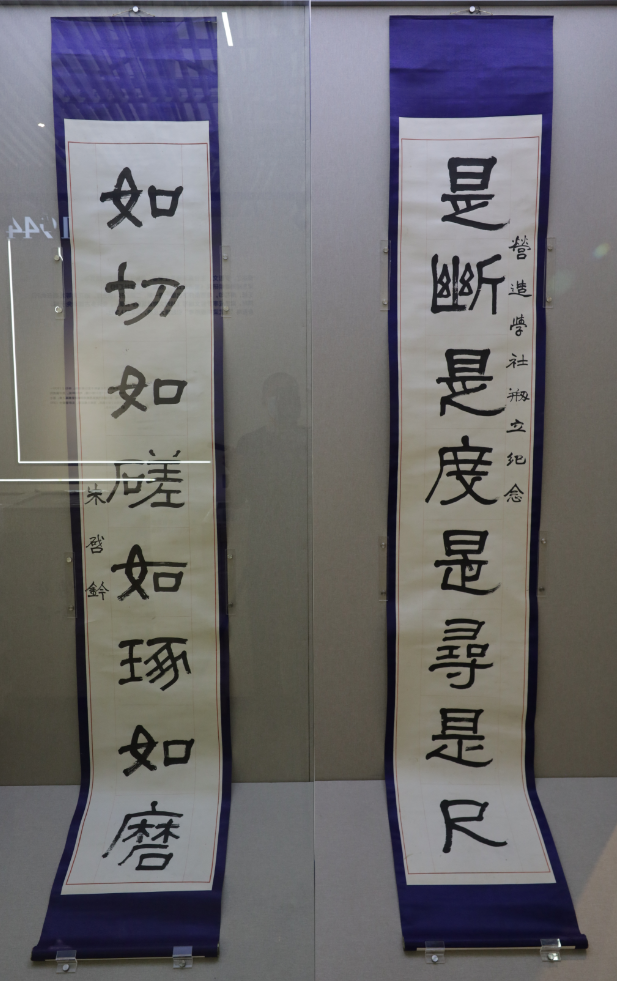 是斷是度是尋是尺
營造學社刱立紀念
如切如磋如琢如磨
朱啓鈐